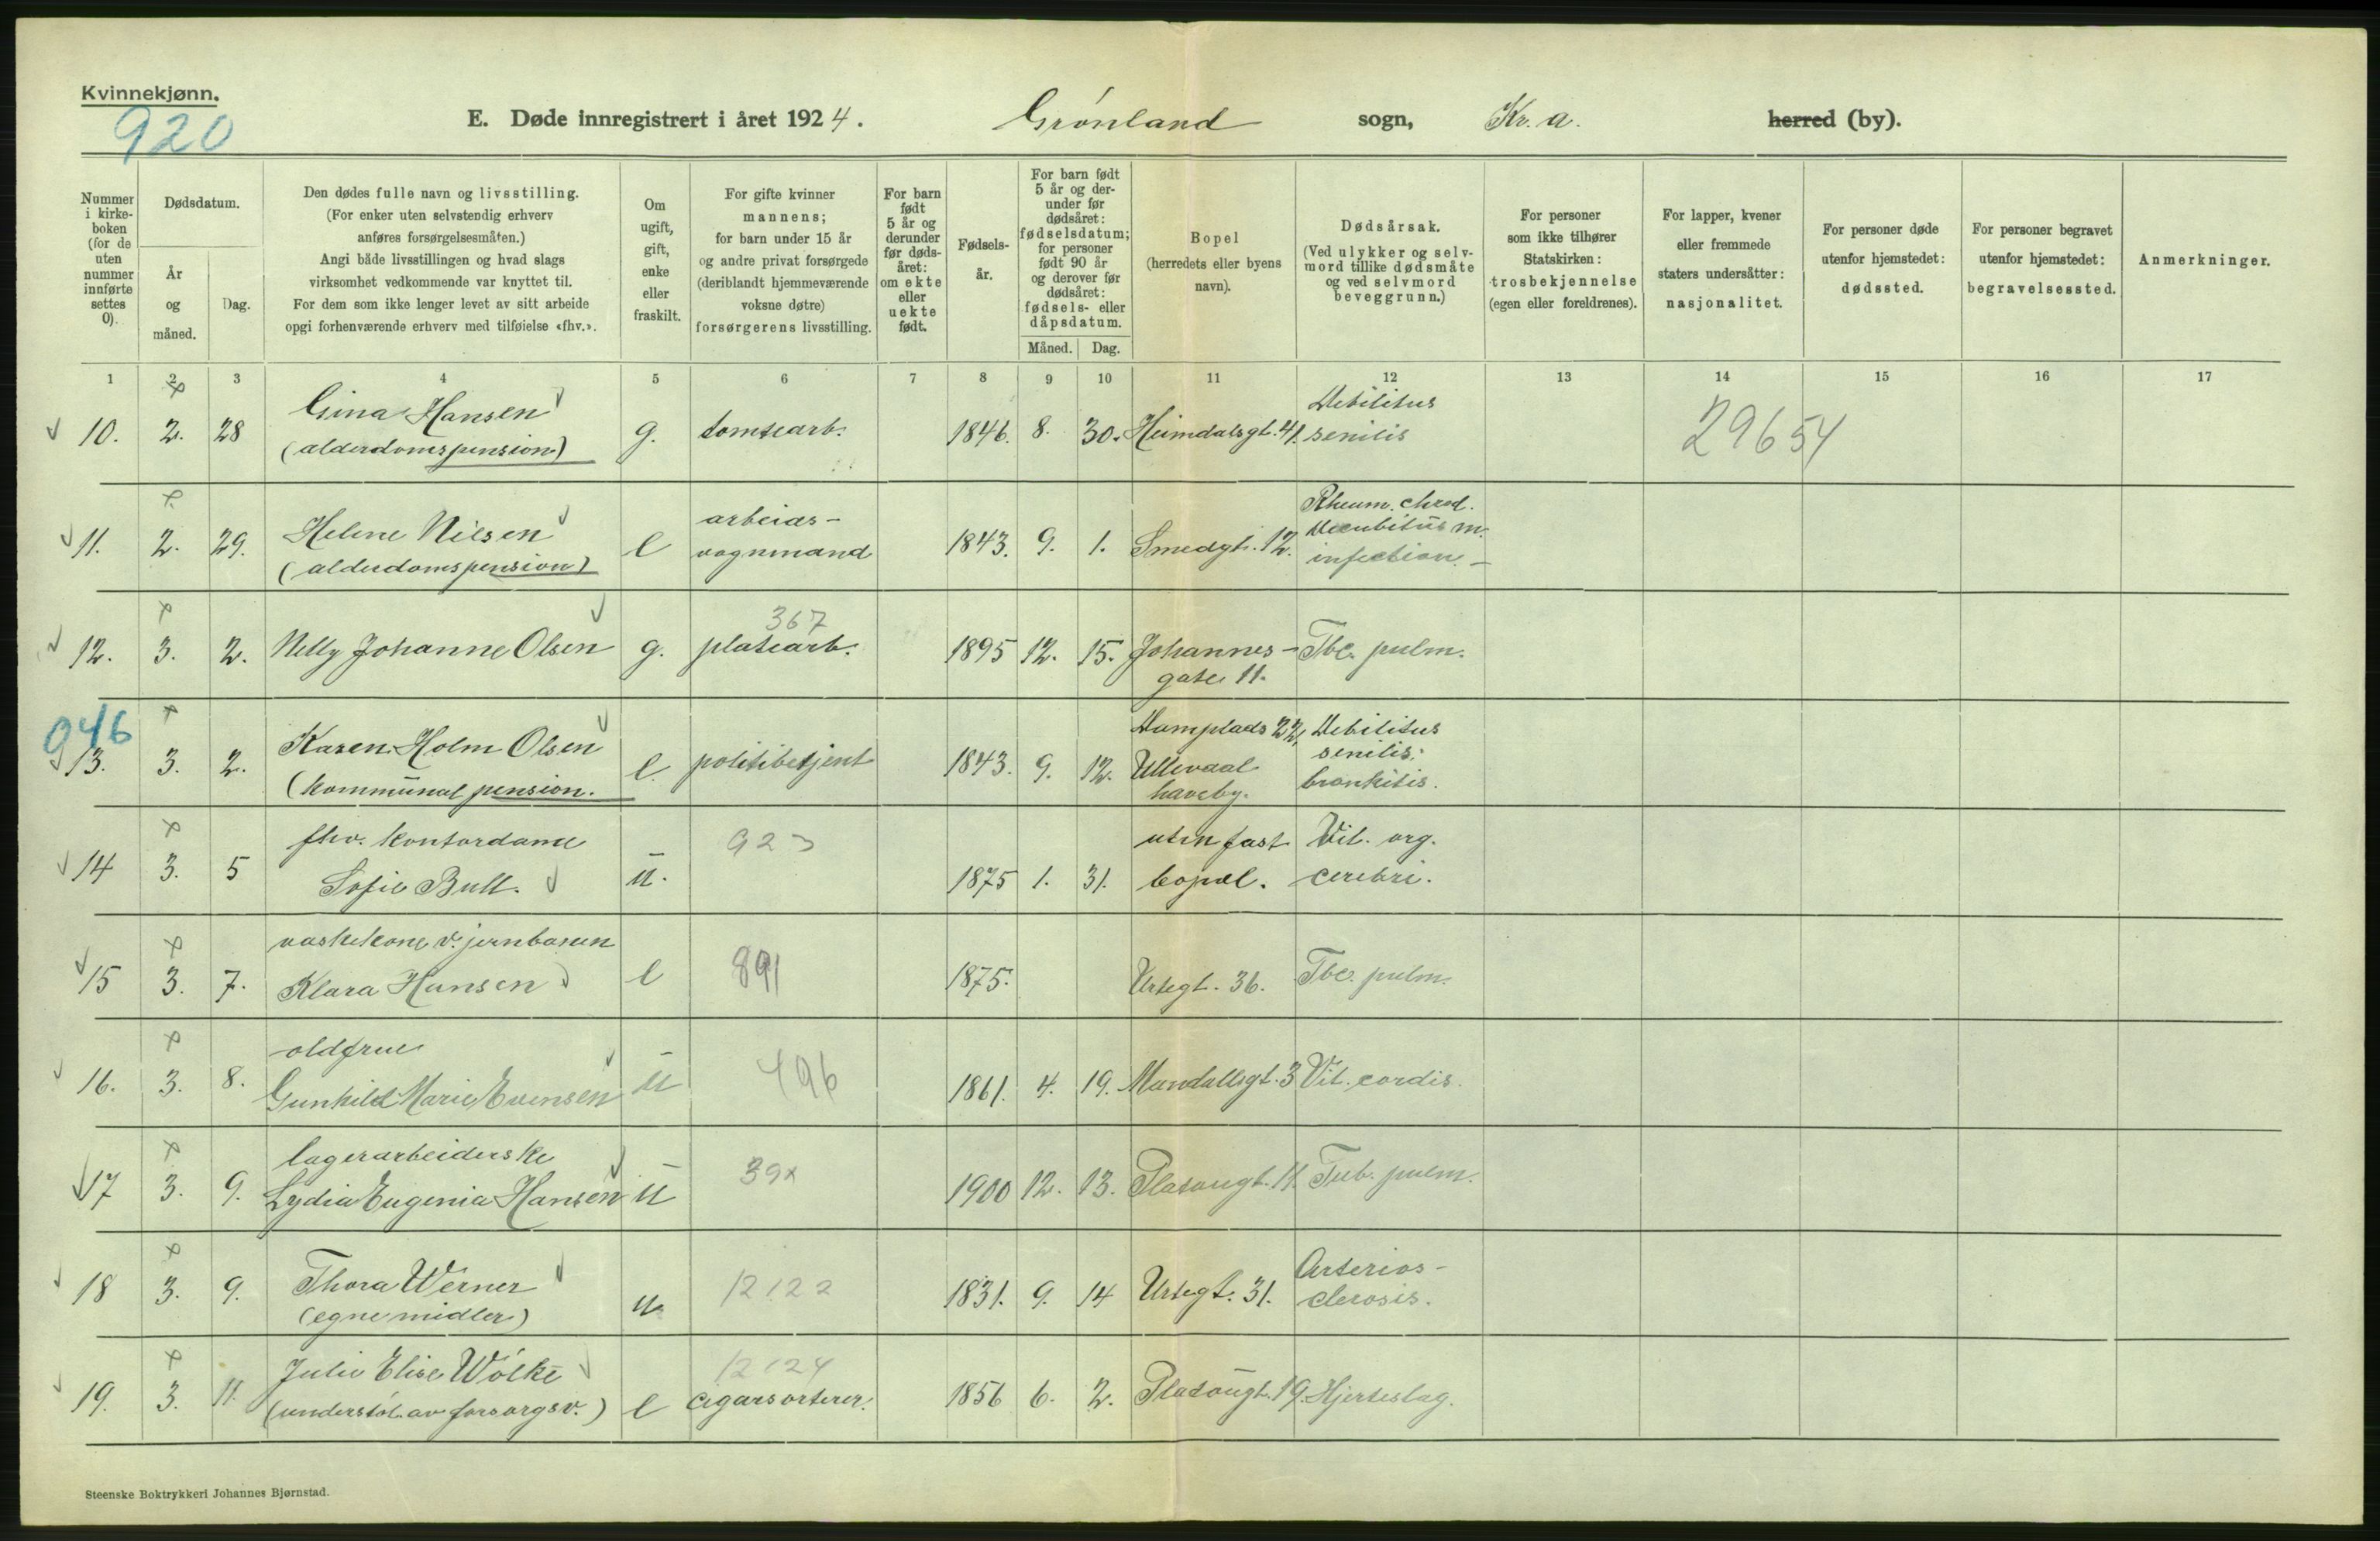 Kvinnekjønn.
920
E. Døde innregistrert i året 1924. Grønland sogn, Kr.a. herred (by).
Nummer i kirke-boken (for de uten nummer innførte settes 0).
Dødsdatum.
År og måned.
Dag.
Den dødes fulle navn og livsstilling.
(For enker uten selvstendig erhverv
anføres forsørgelsesmåten.)
Angi både livsstillingen og hvad slags
virksomhet vedkommende var knyttet til.
For dem som ikke lenger levet av sitt arbeide
opgi forhenværende erhverv med tilføielse «fhv.».
Om ugift, gift, enke eller fraskilt.
For gifte kvinner
mannens;
for barn under 15 år
og andre privat forsørgede
(deriblandt hjemmeværende
voksne døtre)
forsørgerens livsstilling.
For barn født 5 år og derunder før døds-året: om ekte eller uekte født.
Fødsels-år.
For barn født 5 år og der-under før dødsåret: fødselsdatum; for personer født 90 år og derover før dødsåret: fødsels- eller dåpsdatum.
Måned. Dag.
Bopel
(herredets eller byens navn).
Dødsårsak.
(Ved ulykker og selv-mord tillike dødsmåte og ved selvmord beveggrunn.)
For personer som ikke tilhører Statskirken: trosbekjennelse (egen eller foreldrenes).
For lapper, kvener eller fremmede staters undersåtter: nasjonalitet.
For personer døde utenfor hjemstedet: dødssted.
For personer begravet utenfor hjemstedet: begravelsessted.
Anmerkninger.
1 2 3 4 5 6 7 8 9 10 11 12 13 14 15 16 17
10. 2. 28 Gina Hansen (alderdomspension) g. tomtearb. 1846. 8. 30. Heimdalsgt. 41. Debilitus senilis 29654
11. 2. 29. Helene Nilsen (alderdomspension) e arbeids-vognmand 1843. 9. 1. Smedgt. 12. Rheum. chrod. Decubitus m. infection.
367
12. 3. 2. Nelly Johanne Olsen g. platearb. 1895 12. 15. Johannes-gate 11. Tbc. pulm.
946
13. 3. 2. Karen Holm Olsen (kommunal pension. e. politibetjent 1843. 9. 12. Damplads 22, Ullevaal haveby. Debilitus senilis. bronkitis.
14 3. 5 fhv. kontordame Sofie Bull. u. 923 1875 1. 31. uten fast bopæl. Vit. org. cerebri.
15 3. 7. vaskekone v. jernbanen Klara Hansen e 891 1875. Urtegt. 36. Tbc. pulm.
16. 3. 8. oldfrue Gunhild Marie Evensen u 496 1861. 4. 19. Mandallsgt. 3 Vit. cordis.
17 3. 9. lagerarbeiderske Lydia Eugenia Hansen u 39x 1900 12. 13. Platougt. 11. Tub. pulm.
18 3. 9. Thora Werner (egne midler) u. 12122 1831. 9. 14 Urtegt. 31. Arterios-clerosis.
12124
19. 3. 11. Julie Elise Wölke (understøt. av forsorgsv.) e cigarsorterer. 1856 6. 2. Platougt. 19. Hjerteslag.
Steenske Boktrykkeri Johannes Bjørnstad.